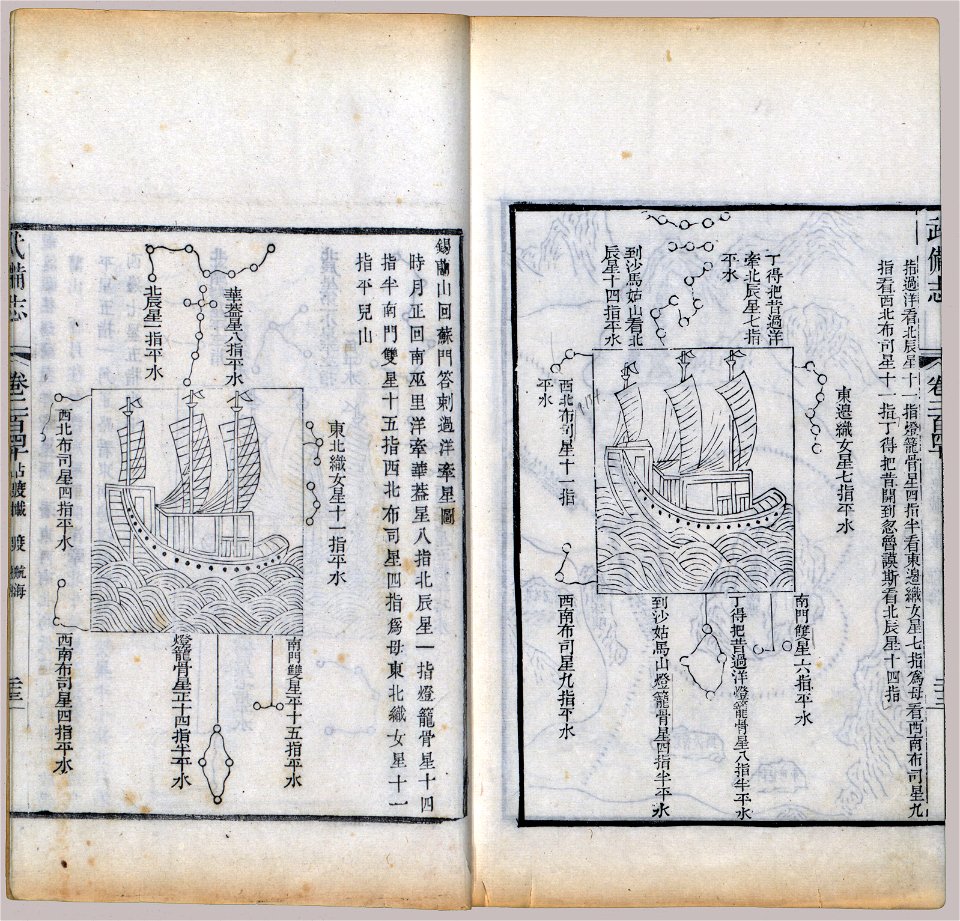 武備志 卷二百四十
指過洋看北辰星十一指燈籠骨星四指半看東邊織女星七指為母看西南布司星九
指看西北布司星十一指丁得把昔開到忽魯謨斯看北辰星十四指
丁得把昔過洋
牽北辰星七指
平水
到沙馬姑山看北
辰星十四指平水
東邊織女星七指平水
西北布司星十一指
平水
南門雙星六指平水
丁得把昔過洋燈籠骨星八指半平水
到沙姑馬山燈籠骨星四指半平水
西南布司星九指平水
錫蘭山回蘇門答剌過洋牽星圖
時月正回南巫里洋牽華蓋星八指北辰星一指燈籠骨星十四
指半南門雙星十五指西北布司星四指為母東北織女星十一
指平兒山
華蓋星八指平水
北辰星一指平水
東北織女星十一指平水
西北布司星四指平水
南門雙星平十五指平水
燈籠骨星正十四指半平水
西南布司星四指平水
武備志 卷二百四十 占度載 度 航海